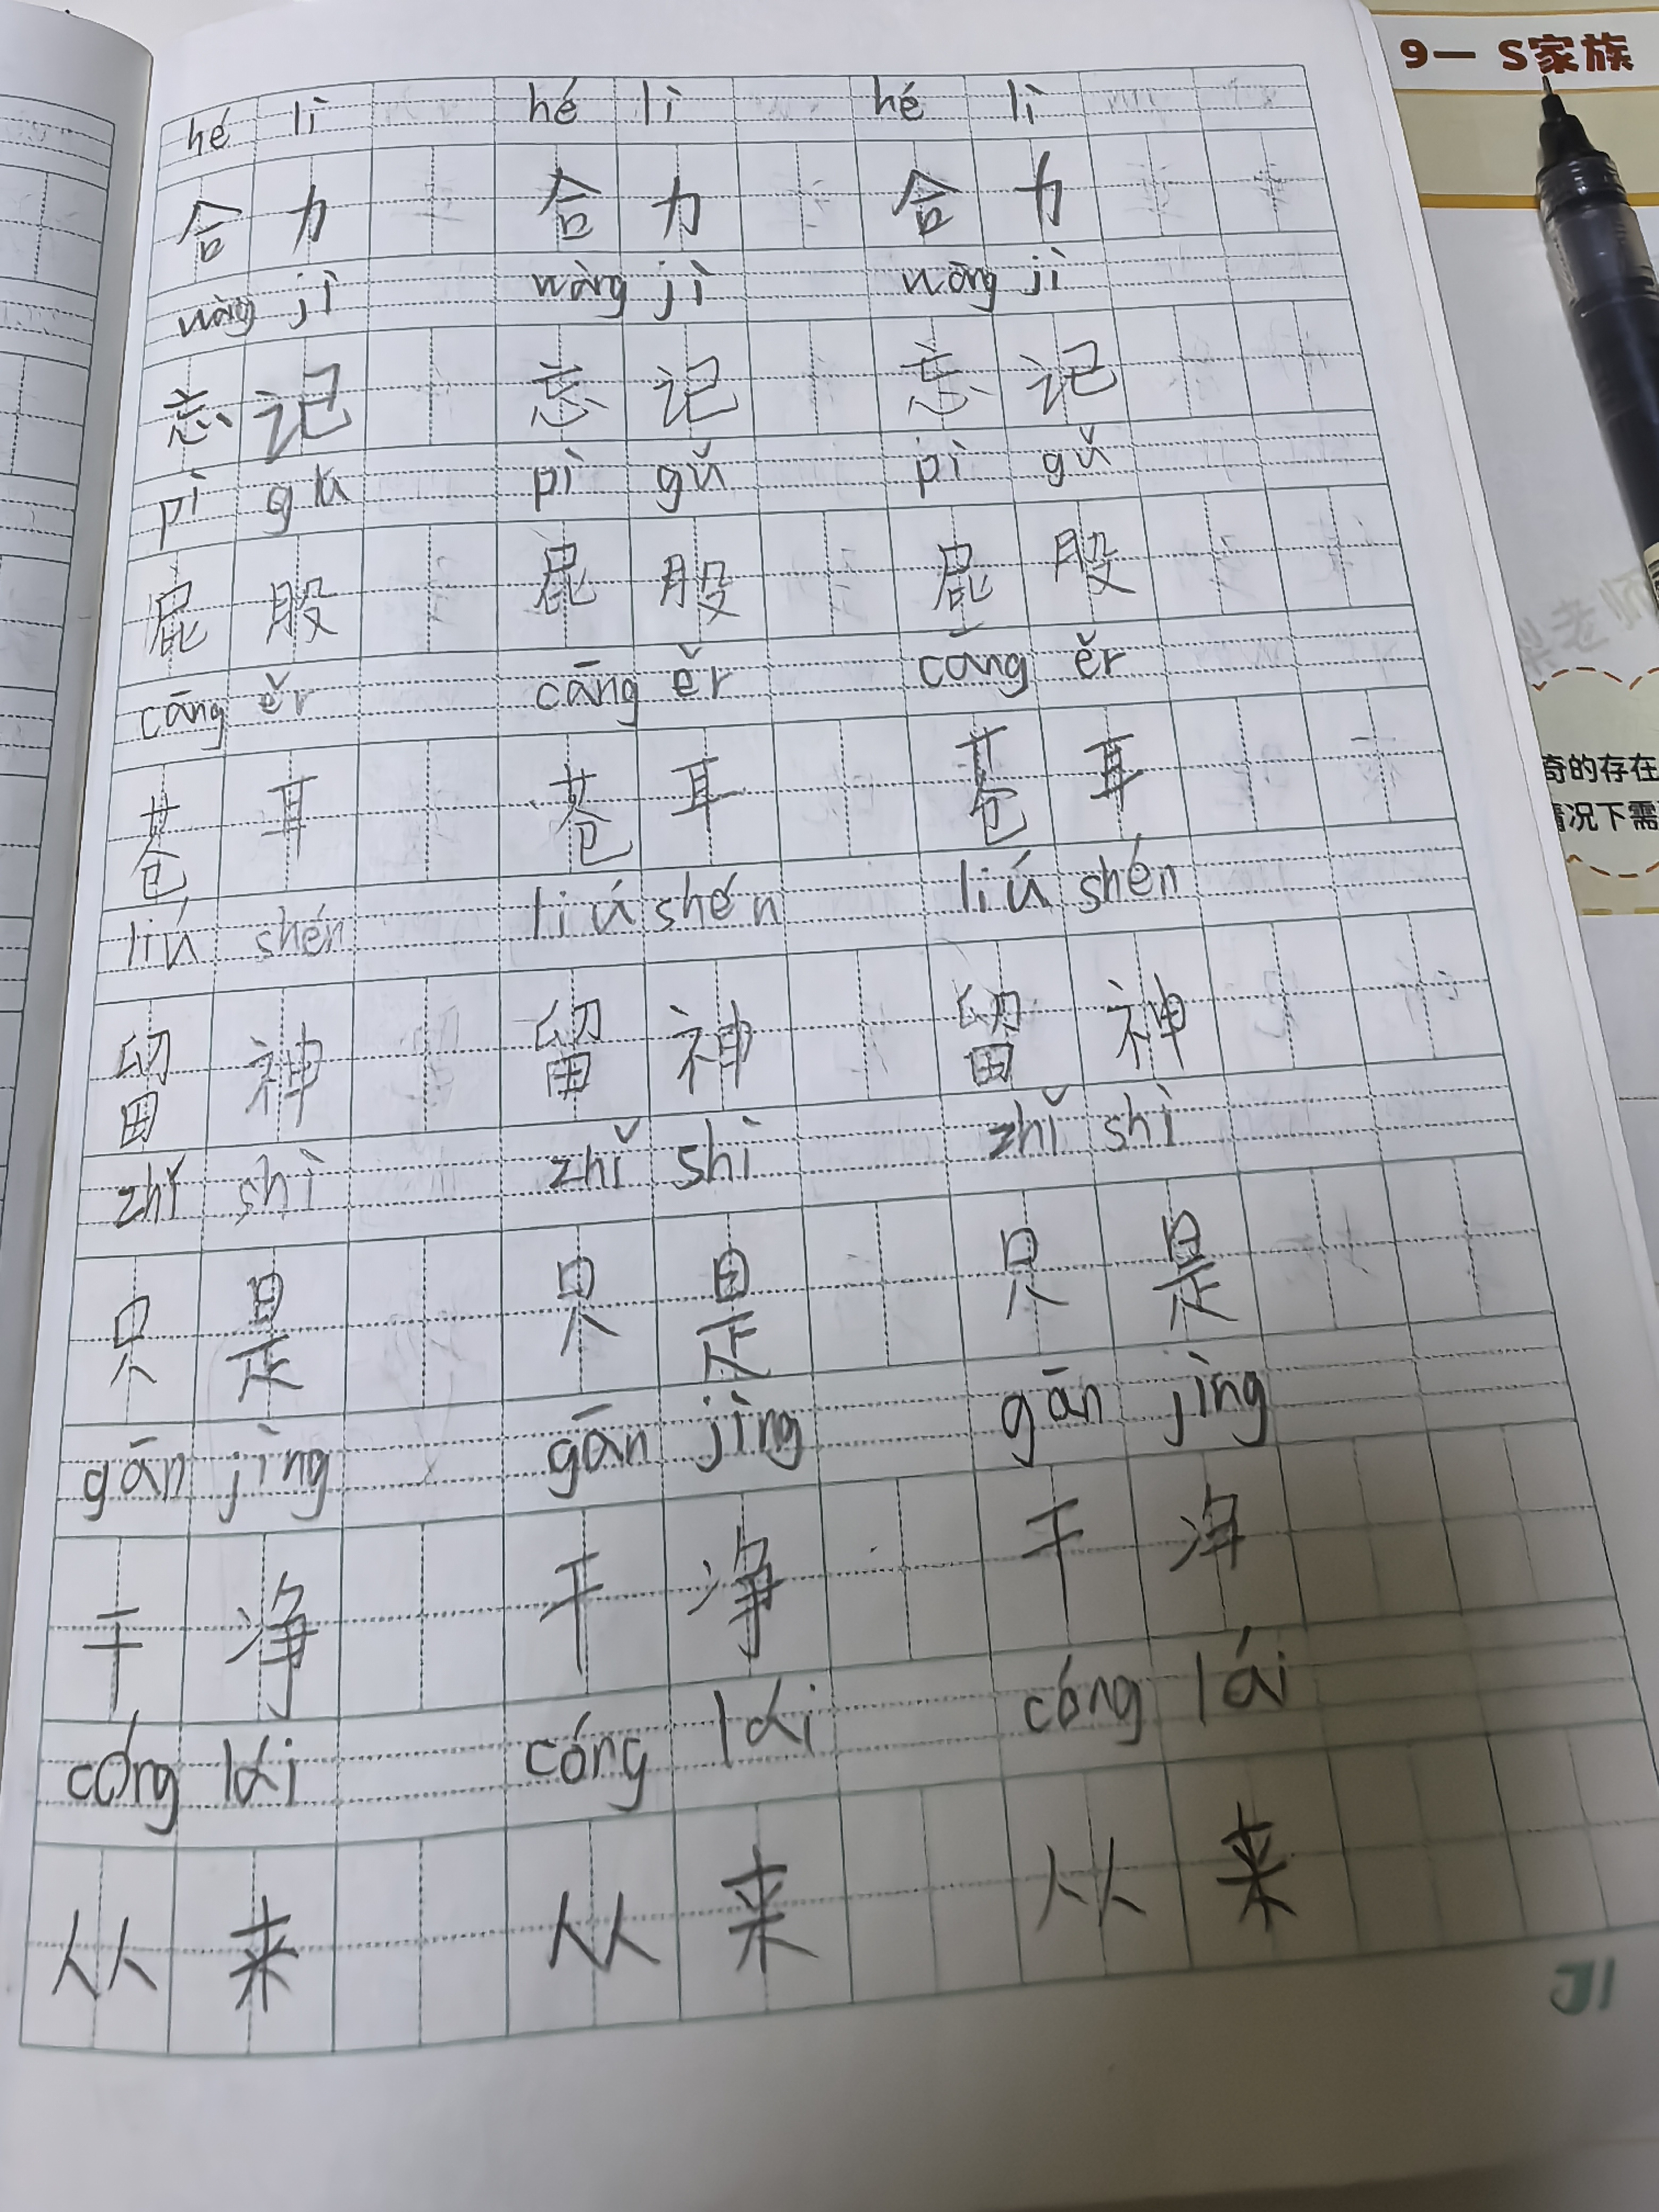 9— S家族
hé lì hé lì hé lì
合力 合力 合力
wàng jì wàng jì wàng jì
忘记 忘记 忘记
pì gu pì gǔ pì gǔ
屁股 屁股 屁股
cāng ěr cāng ěr cāng ěr
苍耳 苍耳 苍耳
liú shén liú shén liú shén
留神 留神 留神
zhǐ shì zhǐ shì zhǐ shì
只是 只是 只是
gān jìng gān jìng gān jìng
干净 干净 干净
cóng lái cóng lái cóng lái
从来 从来 从来
梨老师
奇的存在
情况下需